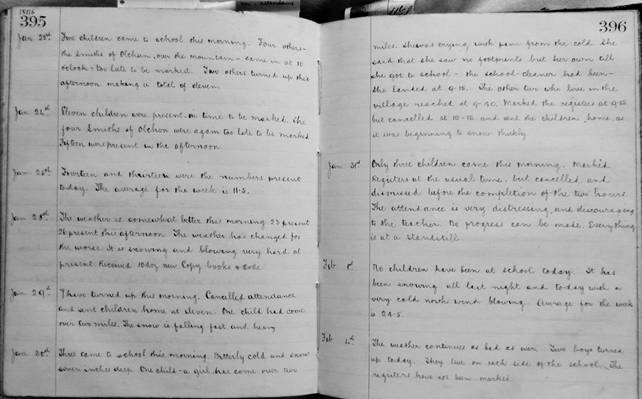 395
Jan 23rd Five children came to school this morning. Four others-
the Smiths of Olchon, over the mountain - came in at 10
o'clock - too late to be marked. Two others turned up this
afternoon making a total of eleven.
Jan 24th Eleven children were present on time to be marked. The
four Smiths of Olchon were again too late to be marked
Fifteen were present in the afternoon.
Jan 25th Fourteen and thirteen were the numbers present
today. The average for the week is 11.5.
Jan 28th The weather is somewhat better this morning 23 present
26 present this afternoon. The weather has changed for
the worse. It is snowing and blowing very hard at
present. Received 10 doz new Copy books
Jan 29th 7 have turned up this morning. Cancelled attendance
and sent children home at eleven. One child had come
over two miles. The snow is falling fast and heavy
Jan 30th Three came to school this morning. Bitterly cold and snow
seven inches deep. One child - a girl has come over two
396
miles. She was crying with pain from the cold. She
said that she saw no footprints but her own till
she got to school - the school-cleaner had been -
She landed at 9-15. The other two who live in the
village reached at 9-30. Marked the registers at
but cancelled at 10-10 and sent the children home as
it was beginning to snow thickly.
Jan 31st Only three children came this morning. Marked
Registers at the usual time, but cancelled, and
dismissed before the completion of the two hours.
The attendance is very distressing, and discouraging
to the teacher. No progress can be made. Everything
is at a standstill.
Feb 1st No children have been at school today. It has
been snowing all last night and today with a
very cold north wind blowing. Average for the week
is 24.5.
Feb 4th The weather continues as bad as ever. Two boys turned
up today. They live on each side of the school. The
registers have not been marked.